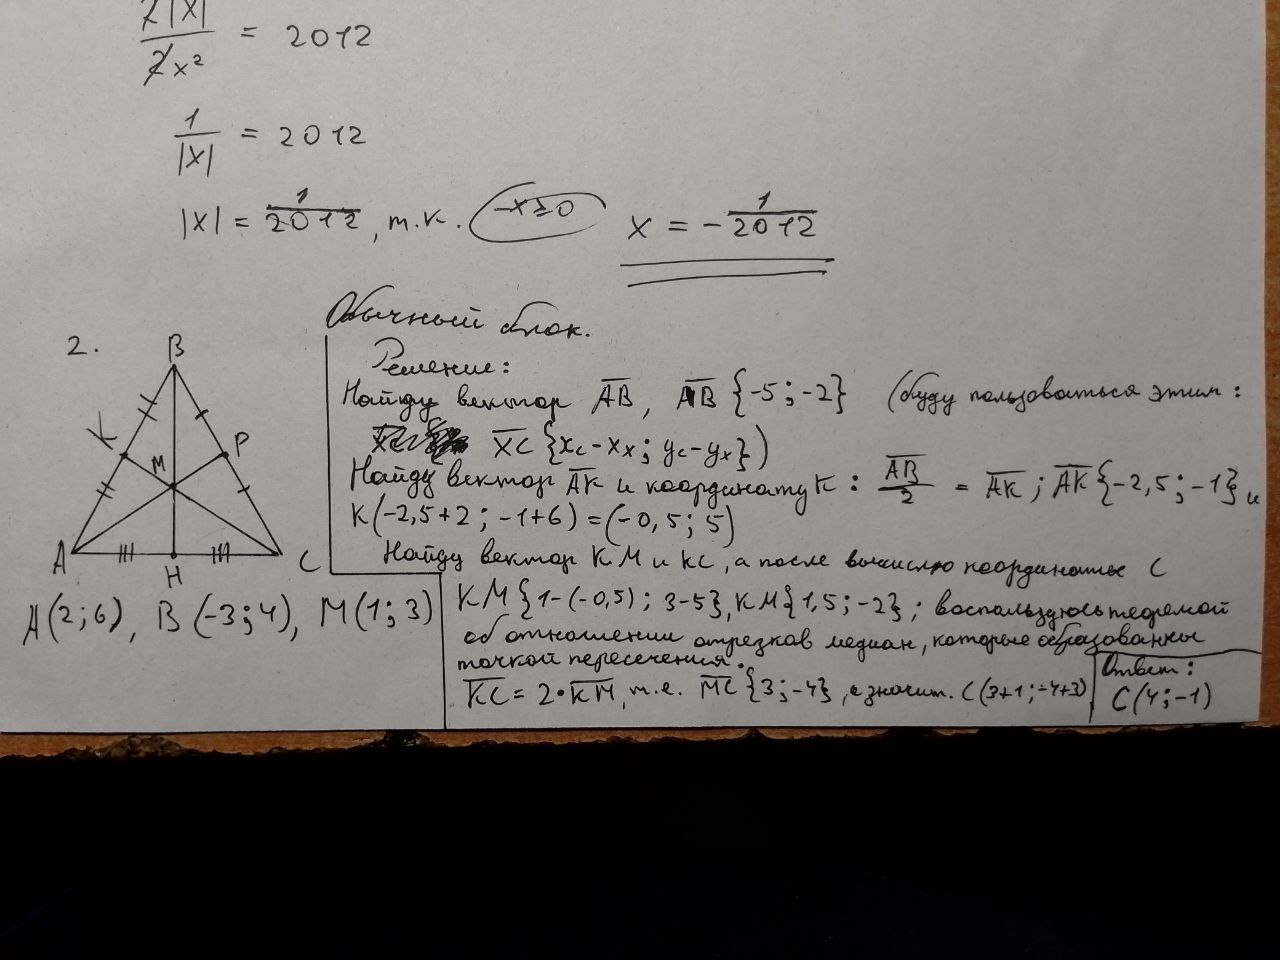 2|x| / 2x² = 2012
1 / |x| = 2012
|x| = 1/2012, т.к. -x≥0 x = - 1/2012
Обычный блок.
2.
B
K
P
M
A
H
C
A(2;6), B(-3;4), M(1;3)
Решение:
Найду вектор AB, AB {-5;-2} (буду пользоваться этим:
XC {x_c-x_x; y_c-y_x})
Найду вектор AK и координату K: AB/2 = AK; AK{-2,5;-1} и
K(-2,5+2; -1+6) = (-0,5; 5)
Найду вектор KM и KC, а после вычислю координаты C
KM{1-(-0,5); 3-5}, KM{1,5;-2}; воспользуюсь теоремой
об отношении отрезков медиан, которые образованны
точкой пересечения.
KC = 2·KM, т.е. MC{3;-4}, а значит. C(3+1;-4+3)
Ответ:
C(4;-1)